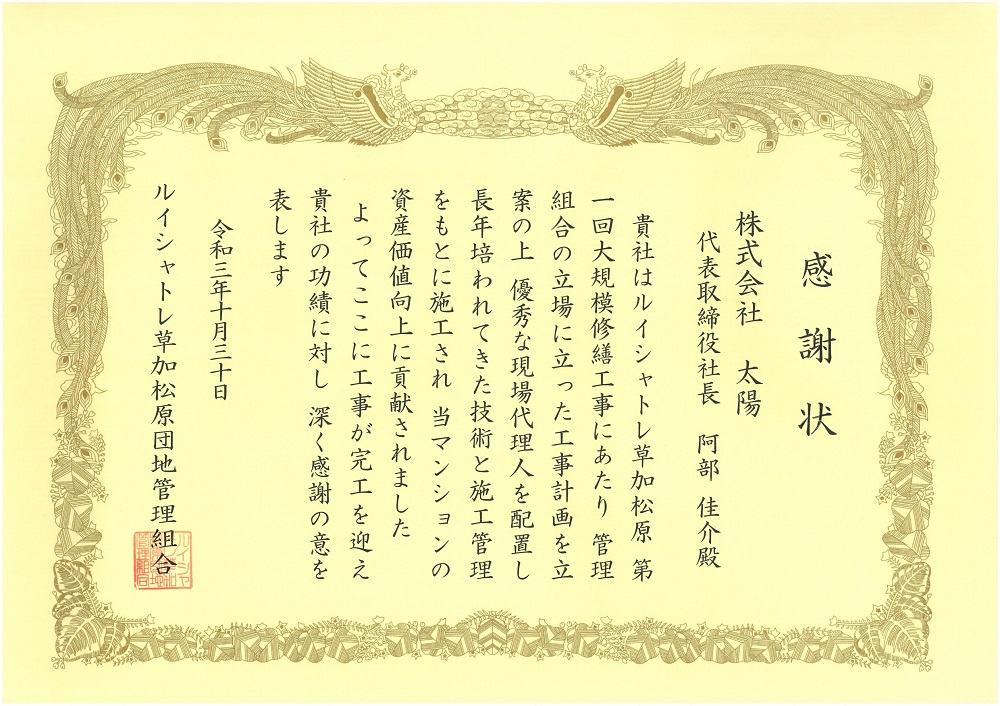 感謝状
株式会社 太陽
代表取締役社長 阿部 佳介殿
貴社はルイシャトレ草加松原 第
一回大規模修繕工事にあたり 管理
組合の立場に立った工事計画を立
案の上 優秀な現場代理人を配置し
長年培われてきた技術と施工管理
をもとに施工され 当マンションの
資産価値向上に貢献されました
よってここに工事が完工を迎え
貴社の功績に対し 深く感謝の意を
表します
令和三年十月三十日
ルイシャトレ草加松原団地管理組合